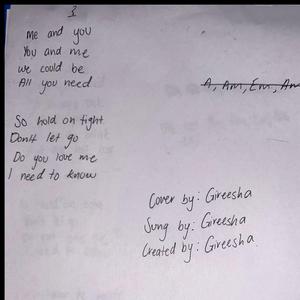 3
Me and you
You and me
we could be
All you need
A, Am, Em, Am
So hold on tight
Don't let go
Do you love me
I need to know
Cover by: Gireesha
Sung by: Gireesha
Created by: Gireesha